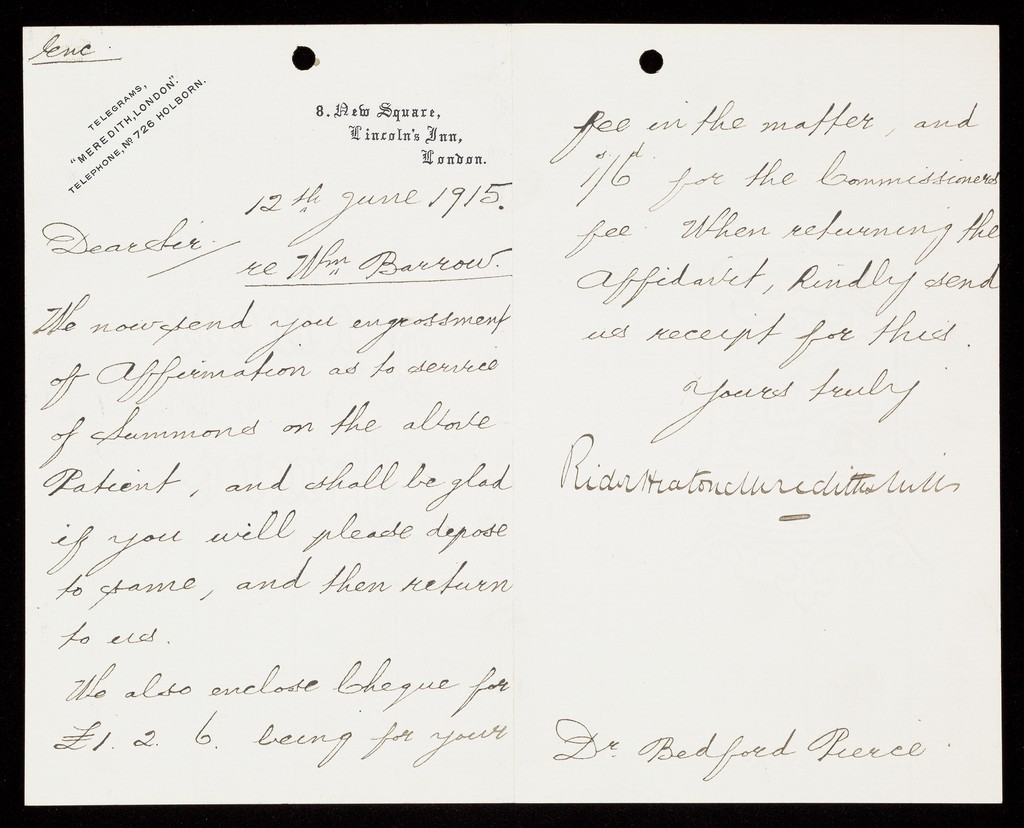 Enc.
TELEGRAMS,
"MEREDITH, LONDON".
TELEPHONE, No 726 HOLBORN.
8. New Square,
Lincoln's Inn,
London.
12th June 1915.
Dear Sir
re Wm Barrow.
We now send you engrossment
of Affirmation as to service
of Summons on the above
Patient, and shall be glad
if you will please depose
to same, and then return
to us.
We also enclose Cheque for
£1. 2. 6. being for your
fee in the matter, and
1s/6d for the Commissioners
fee. When returning the
Affidavit, kindly send
us receipt for this.
Yours truly
Rider Heaton Meredith & Mills
Dr. Bedford Pierce